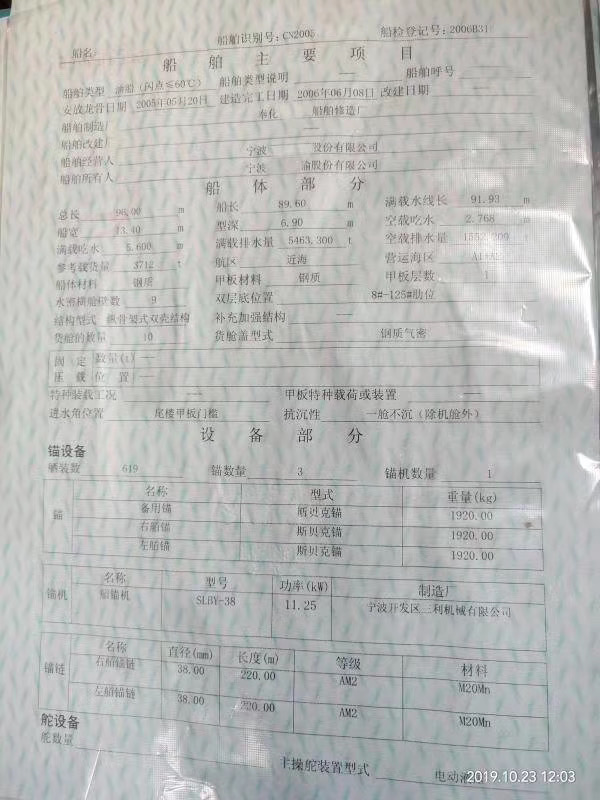 船名: 船舶识别号: CN2005 船检登记号: 2006B31
船舶主要项目
船舶类型 油船 (闪点≤60℃) 船舶类型说明 — 船舶呼号
安放龙骨日期 2005年05月20日 建造完工日期 2006年06月08日 改建日期 —
船舶制造厂 奉化 船舶修造厂
船舶改建厂 —
船舶经营人 宁波 股份有限公司
船舶所有人 宁波 渝股份有限公司
船体部分
总长 96.00 m 船长 89.60 m 满载水线长 91.93 m
船宽 13.40 m 型深 6.90 m 空载吃水 2.768 m
满载吃水 5.600 m 满载排水量 5463.300 t 空载排水量 t
参考载货量 3712 t 航区 近海 营运海区 A1+A2
船体材料 钢质 甲板材料 钢质 甲板层数 1
水密横舱壁数 9 双层底位置 8#-125#肋位
结构型式 纵骨架式双壳结构 补充加强结构 —
货舱的数量 10 货舱盖型式 钢质气密
固定 数量(t) —
压载 位置 —
特种装载工况 — 甲板特种载荷或装置 —
进水角位置 尾楼甲板门槛 抗沉性 一舱不沉 (除机舱外)
设备部分
锚设备
舾装数 619 锚数量 3 锚机数量 1
锚 名称 型式 重量(kg)
备用锚 斯贝克锚 1920.00
右舷锚 斯贝克锚 1920.00
左舷锚 斯贝克锚 1920.00
锚机 名称 型号 功率(kW) 制造厂
艏锚机 SLBY-38 11.25 宁波开发区三利机械有限公司
锚链 名称 直径(mm) 长度(m) 等级 材料
右舷锚链 38.00 220.00 AM2 M20Mn
左舷锚链 38.00 220.00 AM2 M20Mn
舵设备
舵数量 主操舵装置型式 电动液
2019.10.23 12:03